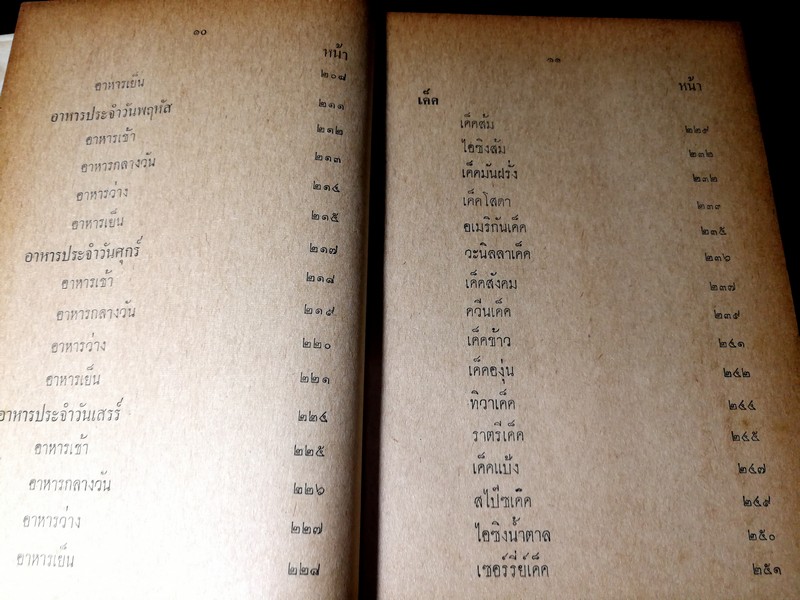 ๑๐
หน้า
อาหารเย็น ๒๐๘
อาหารประจำวันพฤหัส ๒๑๑
อาหารเช้า ๒๑๒
อาหารกลางวัน ๒๑๓
อาหารว่าง ๒๑๔
อาหารเย็น ๒๑๕
อาหารประจำวันศุกร์ ๒๑๗
อาหารเช้า ๒๑๘
อาหารกลางวัน ๒๑๙
อาหารว่าง ๒๒๐
อาหารเย็น ๒๒๑
อาหารประจำวันเสรร์ ๒๒๔
อาหารเช้า ๒๒๕
อาหารกลางวัน ๒๒๖
อาหารว่าง ๒๒๗
อาหารเย็น ๒๒๘
๑๑
หน้า
เค็ค
เค็คส้ม ๒๒๙
ไอซิงส้ม ๒๓๒
เค็คมันฝรั่ง ๒๓๒
เค็คโสดา ๒๓๓
อเมริกันเค็ค ๒๓๕
วะนิลลาเค็ค ๒๓๖
เค็คสังคม ๒๓๗
ควีนเค็ค ๒๓๙
เค็คข้าว ๒๔๑
เค็คองุ่น ๒๔๒
ทิวาเค็ค ๒๔๔
ราตรีเค็ค ๒๔๕
เค็คแป้ง ๒๔๗
สไป๊ซเค็ค ๒๔๙
ไอซิงน้ำตาล ๒๕๐
เชอร์รี่ย์เค็ค ๒๕๑